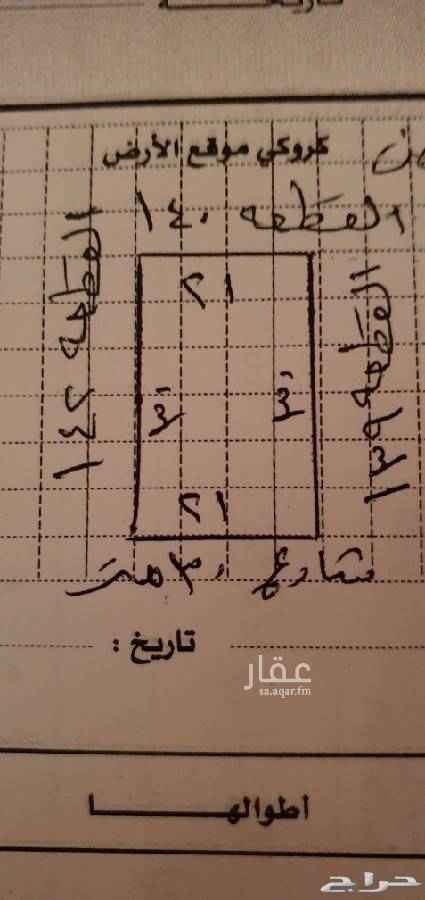 كروكي موقع الأرض
القطعه ١٤٠
القطعه ١٤٢
القطعه ١٣٩
٢١
٣٠
٣٠
٢١
شارع ٣٠ متر
تاريخ :
عقار
sa.aqar.fm
اطوالها
حراج